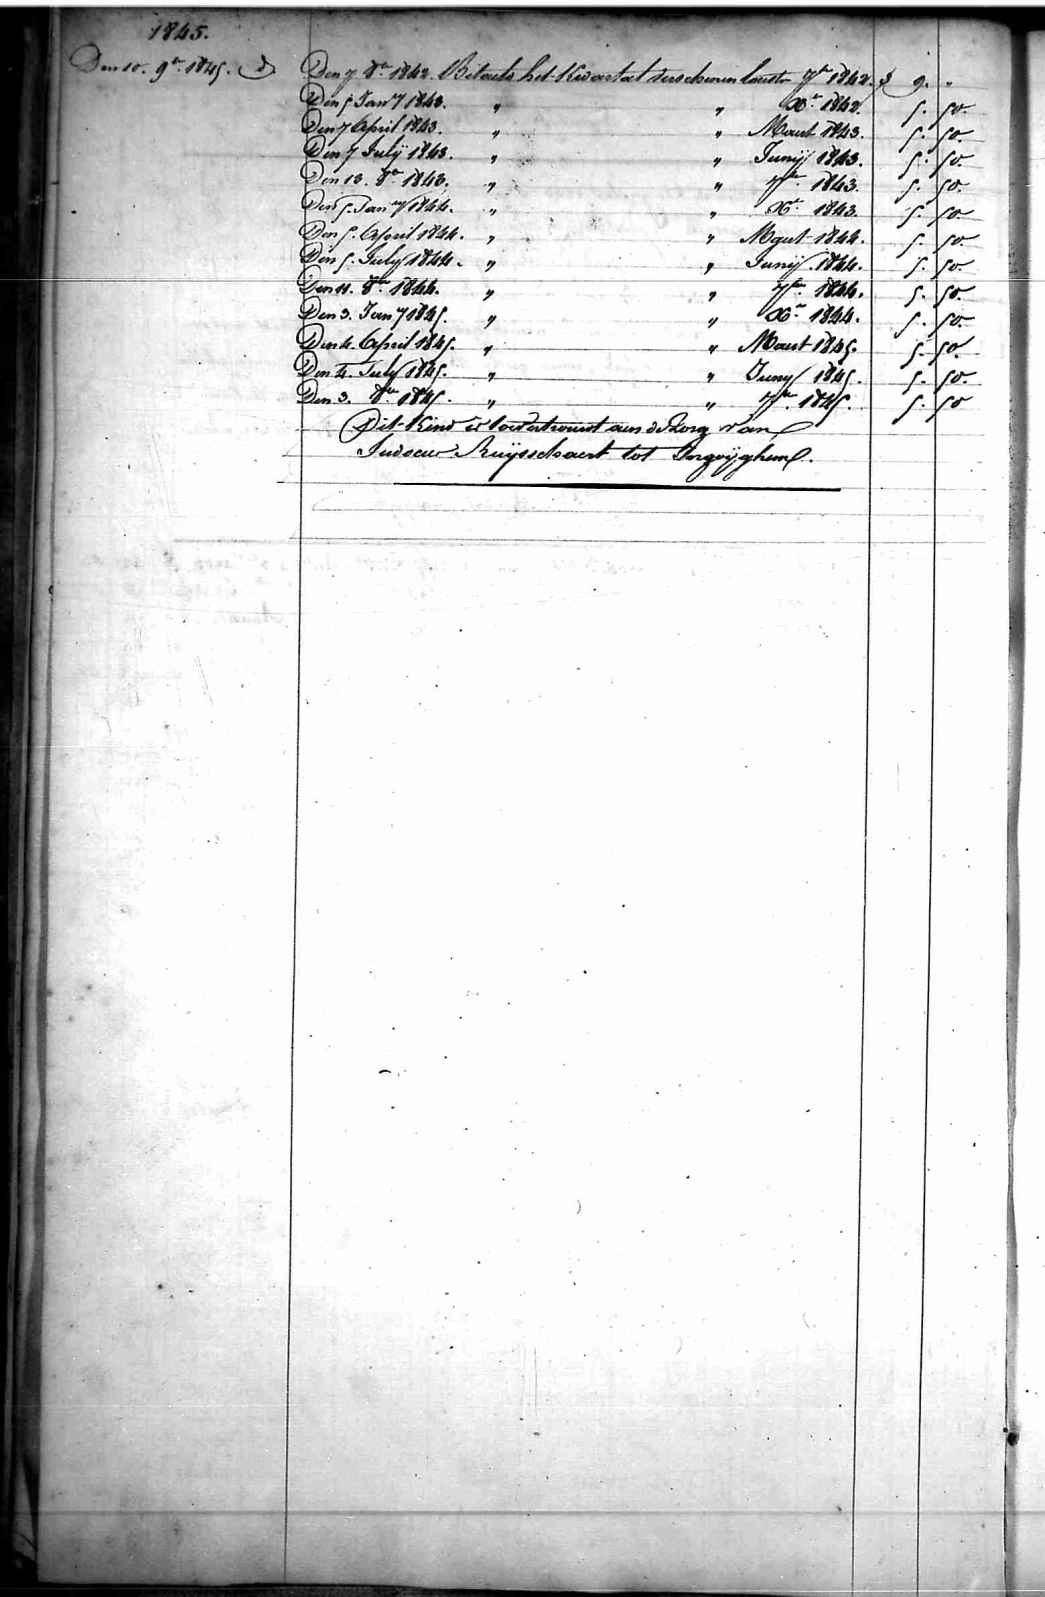 1845.
Den 10. 9br. 1845. d
Den 7 8br 1842. Betaelt het Kwartael verschenen laest 7br 1842. f 9. "
Den 5 Jany 1843. " " Xr. 1842. 5. 50.
Den 7 April 1843. " " Maert 1843. 5. 50.
Den 7 July 1843. " " Junij 1843. 5. 50.
Den 13. 8br 1843. " " 7br. 1843. 5. 50.
Den 5. Jany 1844. " " Xr. 1843. 5. 50
Den 5. April 1844. " " Maert 1844. 5. 50.
Den 5. July 1844. " " Junij 1844. 5. 50.
Den 11. 8br 1844. " " 7br. 1844. 5. 50.
Den 3. Jany 1845. " " Xr 1844. 5. 50.
Den 4. April 1845. " " Maert 1845. 5. 50.
Den 4. July 1845. " " Juny 1845. 5. 50.
Den 3. 8br 1845. " " 7br. 1845. 5. 50
Dit Kind is toevertrouwt aen de Zorg van
Ruijsschaert tot